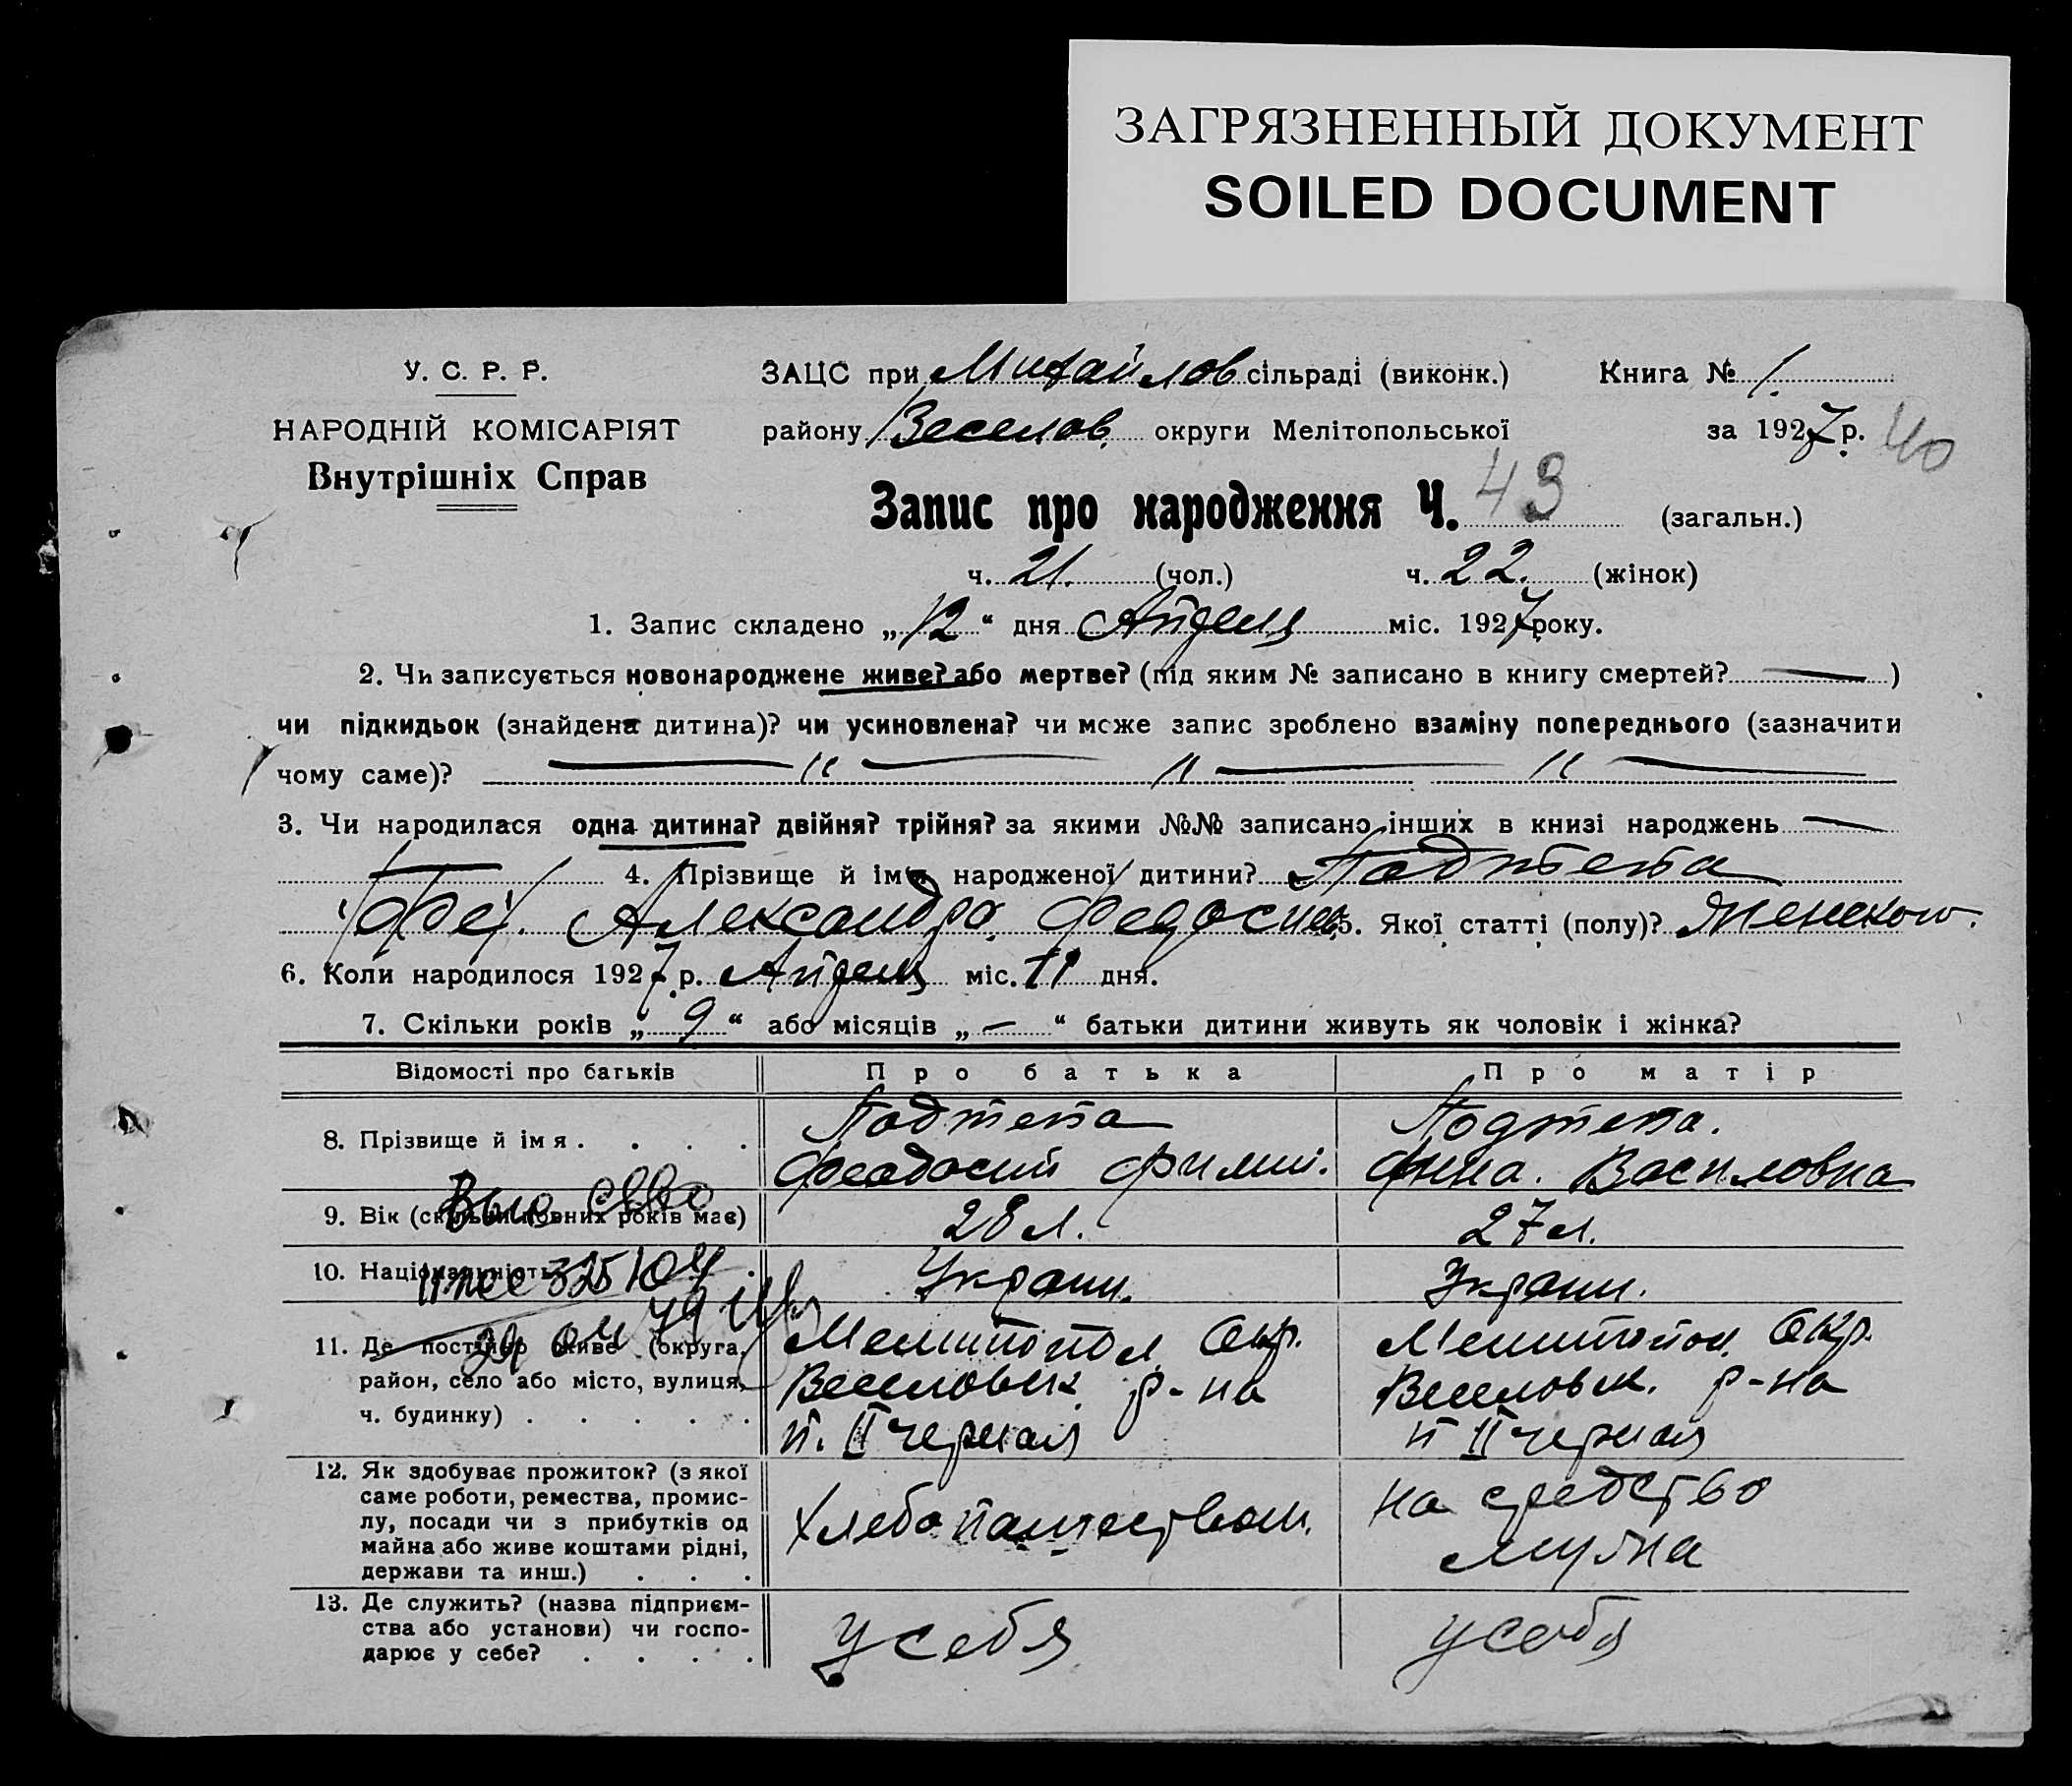 ЗАГРЯЗНЕННЫЙ ДОКУМЕНТ
SOILED DOCUMENT
У. С. Р. Р.
НАРОДНІЙ КОМІСАРІЯТ
Внутрішніх Справ
ЗАЦС при Михайлов сільраді (виконк.)
Книга № 1.
району Веселов. округи Мелітопольської
за 1927 р.
40
Запис про народження Ч. 43 (загальн.)
ч. 21. (чол.) ч. 22. (жінок)
1. Запис складено „12“ дня Апреля міс. 1927 року.
2. Чи записується новонароджене живе? або мертве? (під яким № записано в книгу смертей? — )
чи підкидьок (знайдена дитина)? чи усиновлена? чи може запис зроблено взаміну попереднього (зазначити
чому саме)? — " — " — " —
3. Чи народилася одна дитина? двійня? трійня? за якими №№ записано інших в книзі народжень —
— 4. Прізвище й імя народженої дитини?
Александра 5. Якої статті (полу)? Женского.
6. Коли народилося 1927 р. Апреля міс. 11 дня.
7. Скільки років „ 9 “ або місяців „ — “ батьки дитини живуть як чоловік і жінка?
Відомості про батьків
Про батька
Про матір
8. Прізвище й імя . . . .
Феодосий
Анна. Василовна
9. Вік (скільки повних років має)
28 л.
27 л.
10. Національність
Украин.
Украин.
11. Де постійно живе (округа,
район, село або місто, вулиця,
ч. будинку) . . . . .
Мелитопол. Окр.
Веселовск. р-на
п. II черная
Мелитопол. Окр.
Веселовск. р-на
п II черная
12. Як здобуває прожиток? (з якої
саме роботи, ремества, промис-
лу, посади чи з прибутків од
майна або живе коштами рідні,
держави та инш.) . . .
Хлебопашеством.
на средство
мужа
13. Де служить? (назва підприєм-
ства або установи) чи госпо-
дарює у себе? . . . .
у себя
у себя